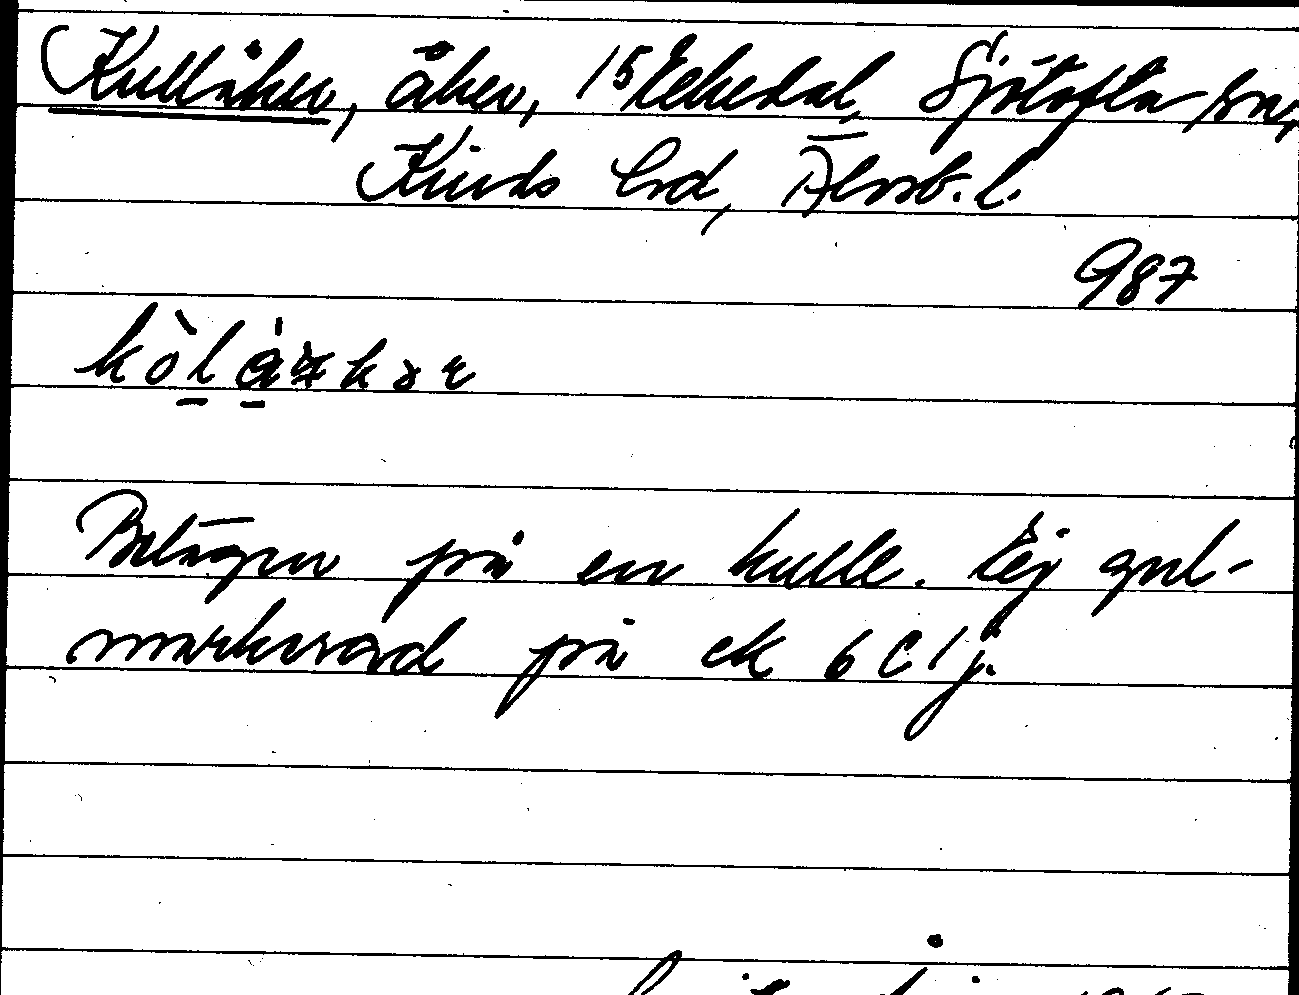 Kullåker, åker, 15 Ekedal, Sjötofta sn,
Kinds hd, Älvsb. l.
987
Belägen på en kulle. Ej gul-
markerad på ek 6 C 1 j.